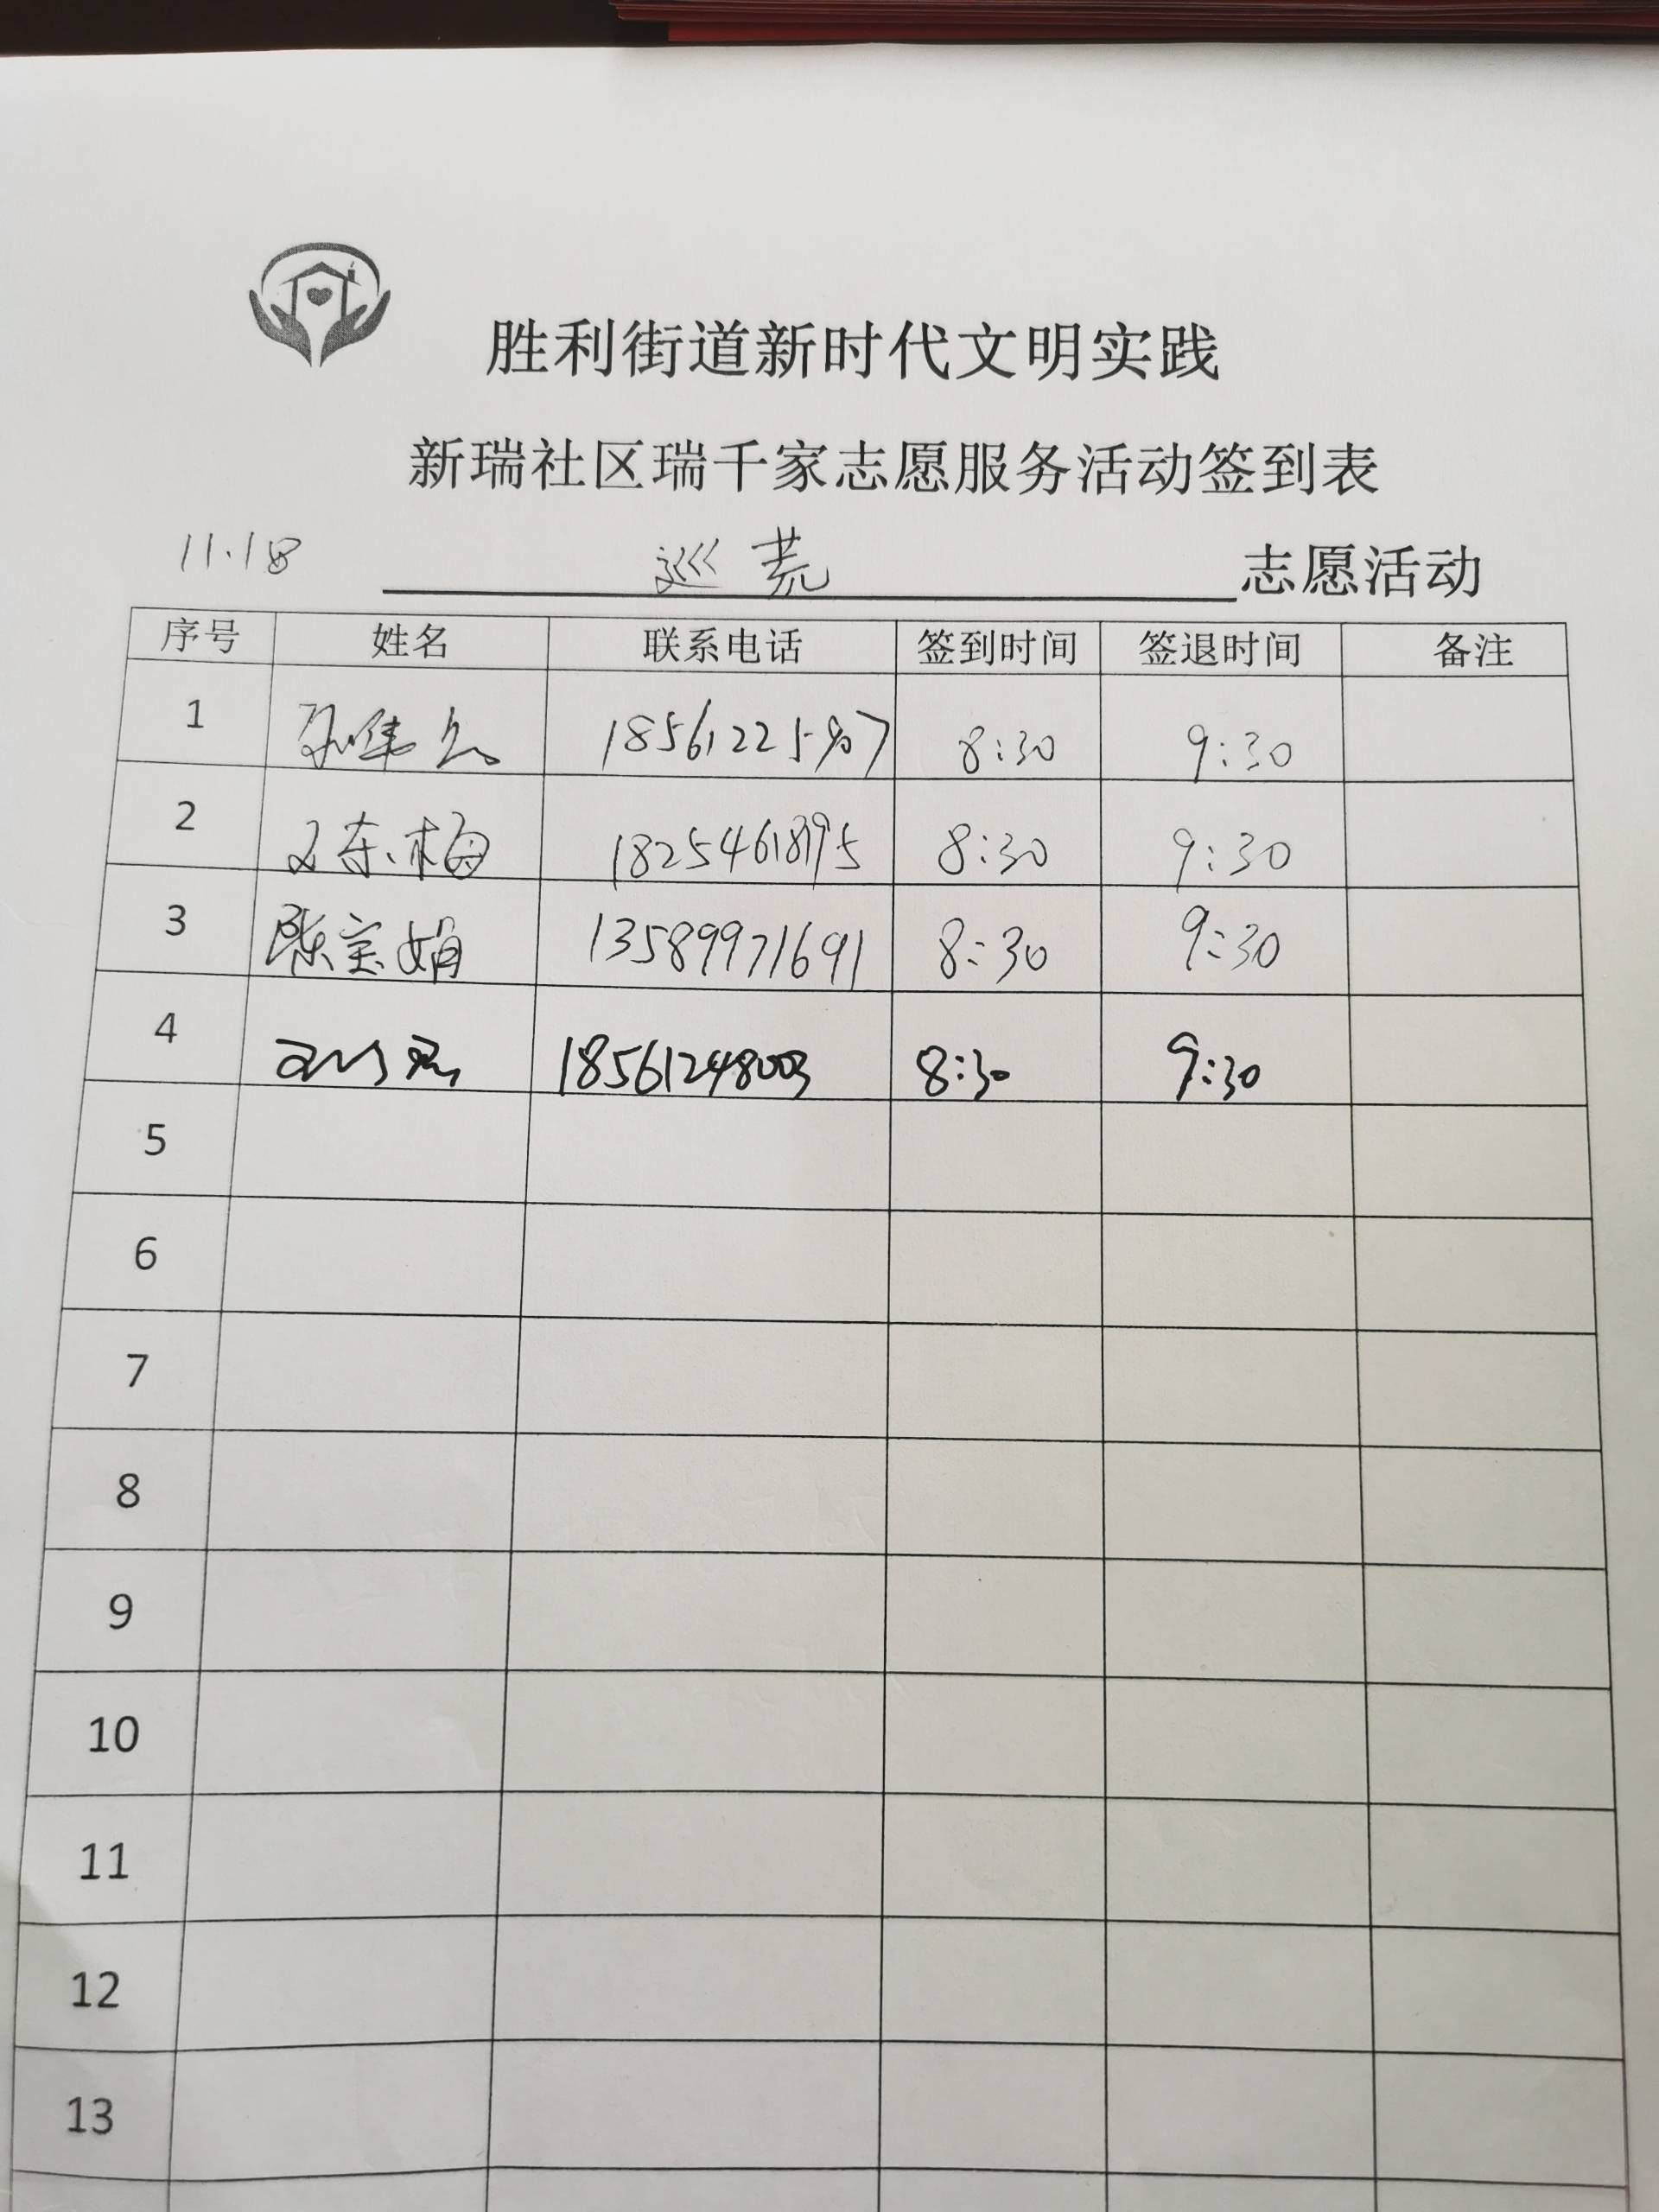 胜利街道新时代文明实践
新瑞社区瑞千家志愿服务活动签到表
11.18 巡荒 志愿活动
序号 姓名 联系电话 签到时间 签退时间 备注
1 8:30 9:30
2 东梅 8:30 9:30
3 陈宝娟 13589971691 8:30 9:30
4 18561248003 8:30 9:30
5
6
7
8
9
10
11
12
13